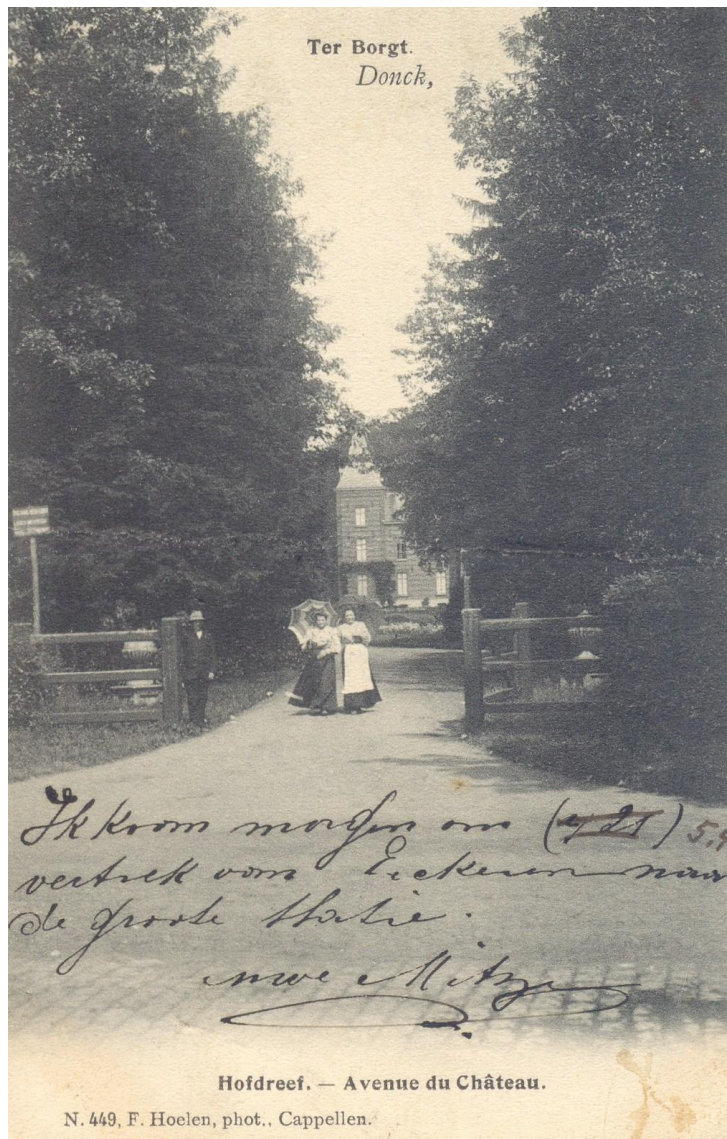 Ter Borgt.
Donck,
Ik koom morgen om (4,21) 5.4
vertrek vom Eeckeren naar
de groote statie.
uwe Mitze
Hofdreef. — Avenue du Château.
N. 449, F. Hoelen, phot., Cappellen.